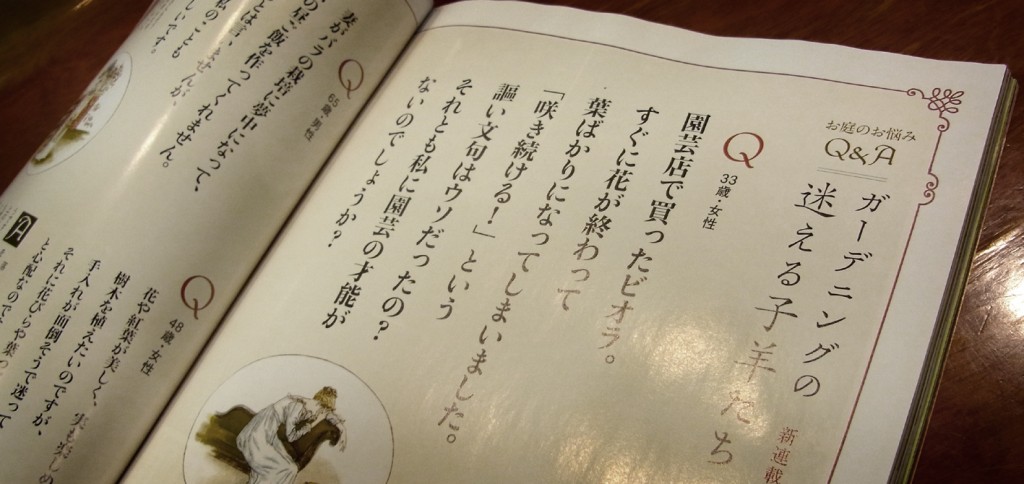 お庭のお悩み
Q&A
ガーデニングの
迷える子羊たち
新連載
Q
33歳・女性
園芸店で買ったビオラ。
すぐに花が終わって
葉ばかりになってしまいました。
「咲き続ける!」という
謳い文句はウソだったの?
それとも私に園芸の才能が
ないのでしょうか?
Q
65歳・男性
妻がバラの栽培に夢中になって、
の昼ご飯を作ってくれません。
とは言いませんが、
私のことも
しいです。
Q
48歳・女性
花や紅葉が美しく、実も楽しめ
樹木を植えたいのですが、
手入れが面倒そうで迷って
それに花びらや葉っ
と心配なので
A